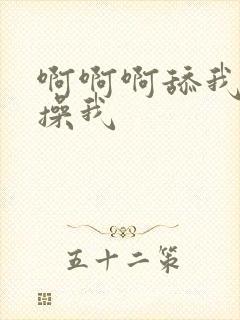 啊啊啊舔我
操我
五十二策